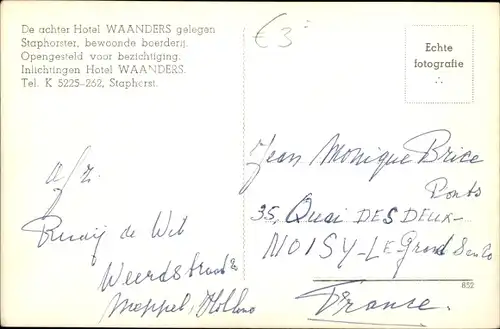 De achter Hotel WAANDERS gelegen
Staphorster, bewoonde boerderij.
Opengesteld voor bezichtiging.
Inlichtingen Hotel WAANDERS.
Tel. K 5225-262, Staphorst.
€3
Echte
fotografie
a/z.
de Wit
Meppel, Holland
Jean Monique Brice
Ponts
35, Quai DES DEUX-
NOISY-LE Grand
832
France.